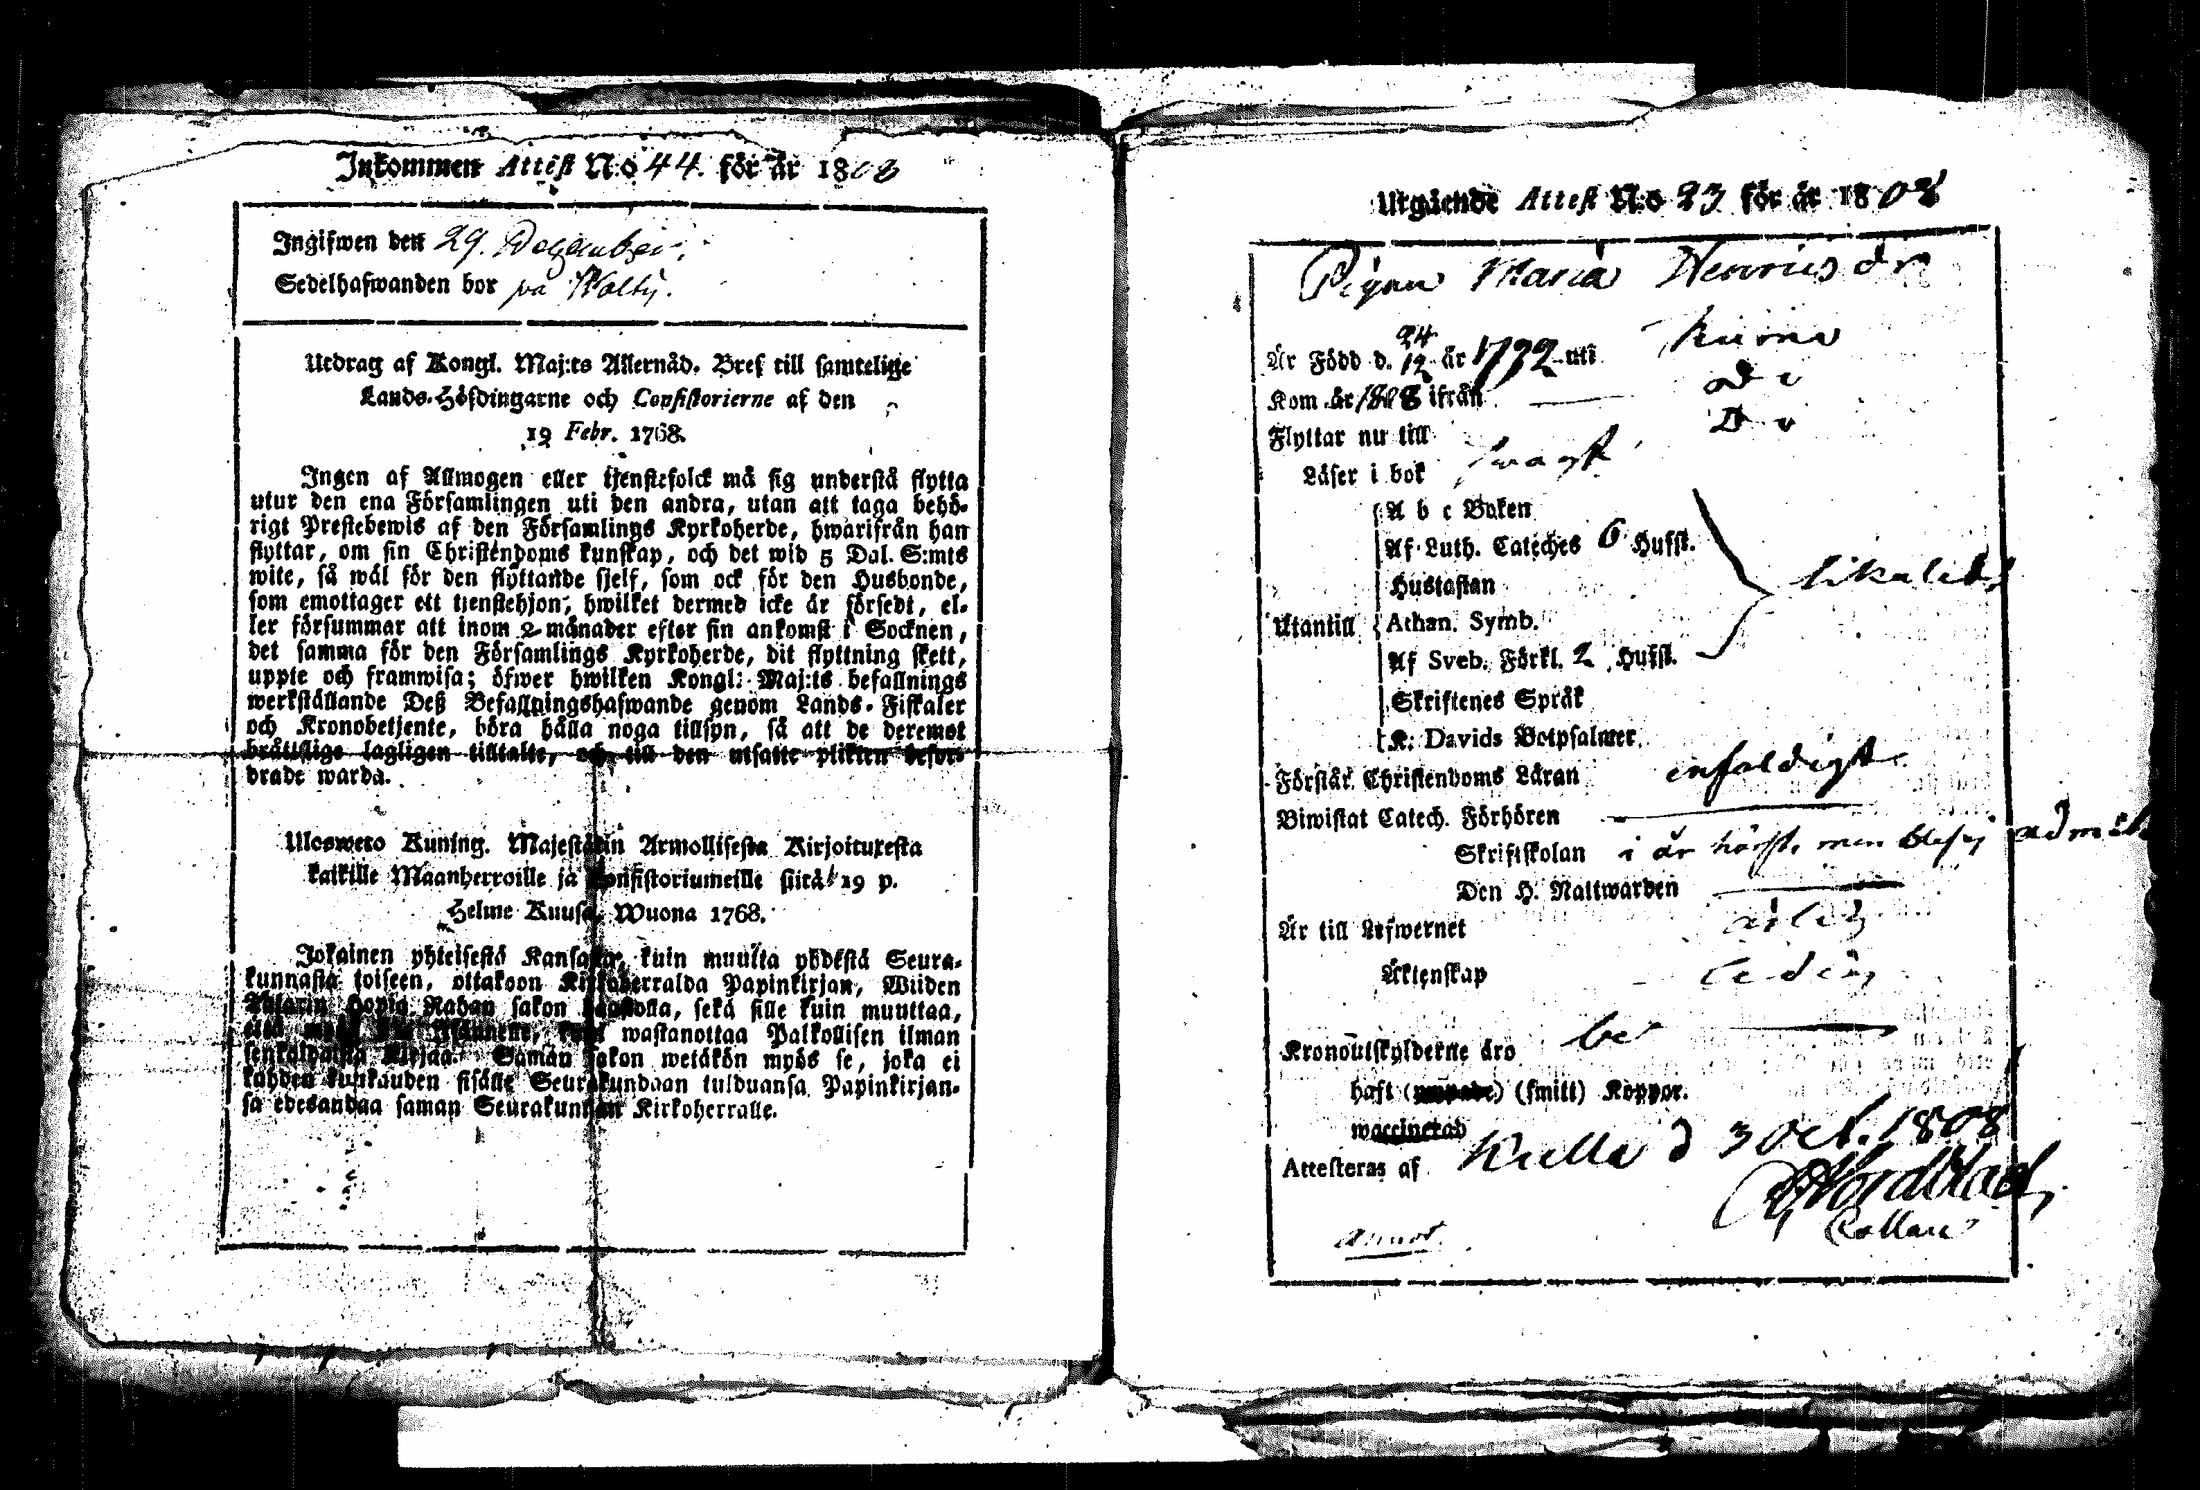 Inkommen Attest N:o 44. för år 1808
Ingifwen den 29. Dezember
Sedelhafwanden bor på
Utdrag af Kongl. Maj:ts Allernåd. Bref till samtelige
Lands-Höfdingarne och Consistorierne af den
19 Febr. 1768.
Ingen af Allmogen eller tjenstefolck må sig understå flytta
utur den ena Församlingen uti den andra, utan att taga behö-
rigt Prestebewis af den Församlings Kyrkoherde, hwarifrån han
flyttar, om sin Christendoms kunskap, och det wid 5 Dal. S:mts
wite, så wäl för den flyttande sjelf, som ock för den Husbonde,
som emottager ett tjenstehjon, hwilket dermed icke är försedt, el-
ler försummar att inom 2 månader efter sin ankomst i Socknen,
det samma för den Församlings Kyrkoherde, dit flyttning skett,
uppte och framwisa; öfwer hwilken Kongl. Maj:ts befallnings
werkställande Deß Befallningshafwande genom Lands-Fiskaler
och Kronobetjente, böra hålla noga tillsyn, så att de deremot
bråttslige lagligen tilltalte, och till den utsatte plikten befor-
drade warda.
Uloswero Kuning. Majestätin Armollisesta Kirjoituxesta
kaikille Maanherroille ja Consistoriumeille siitä 19 p.
Helme Kuusa Wuona 1768.
Jokainen yhteisestä Kansasta, kuin muutta yhdestä Seura-
kunnasta toiseen, ottakoon Kirkoherralda Papinkirjan, Wiiden
Talarin Hopia Rahan sakon haastolla, sekä sille kuin muuttaa,
että wastanottaa Palkollisen ilman
senkaldaista Kirjaa. Saman sakon wetäkön myös se, joka ei
kahden kuukauden sisälle Seurakundaan tulduansa Papinkirjan-
sa edesandaa saman Seurakunnan Kirkoherralle.
Utgående Attest N:o 23 för år 1808
Pigan Maria Henricsdr
Är Född d. 24/12 år 1792 uti Kiimo
Kom år 1808 ifrån
Flyttar nu till
Läser i bok swagt
Utantill
A b c Boken
Af Luth. Cateches 6 Hufst.
Hustaflan
Athan. Symb.
Af Sveb. Förkl. 2 Hufst.
Skriftenes Språk
K. Davids Botpsalmer.
likaledes
Förstår Christendoms Läran enfaldigt
Biwistat Catech. Förhören
Skriftskolan i år härst. men blef ej admit
Den H. Nattwarden
Är till Lefwernet ärlig
Äktenskap ledig
Kronoutskylderne äro be
haft () (smitt) Koppor.
waccinerad
Attesteras af d 3 Oct. 1808
Annot.